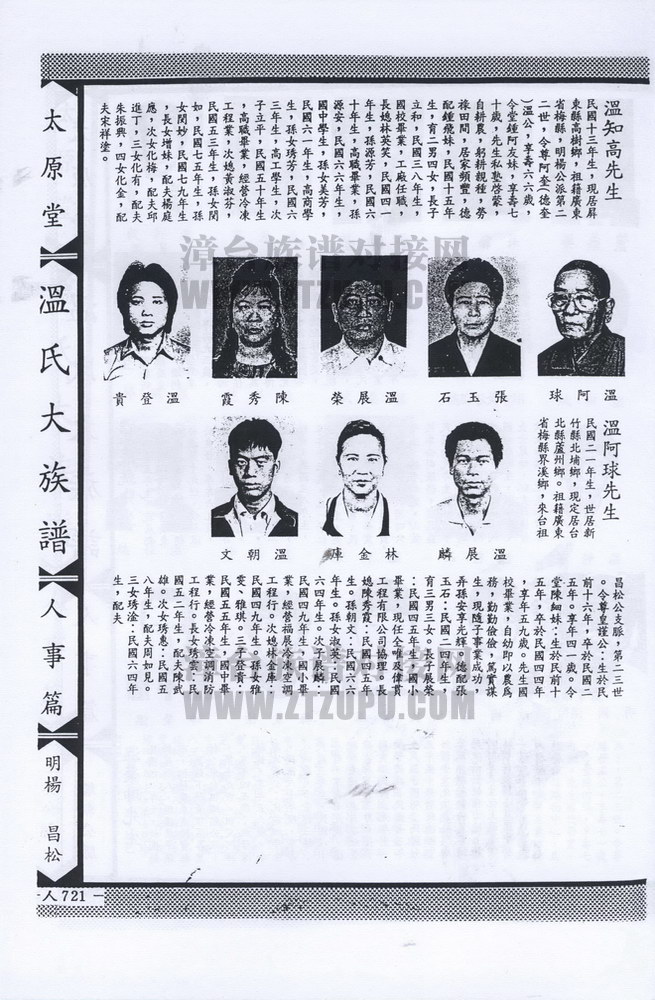 太原堂
溫氏大族譜
人事篇
明楊 昌松
人 721
溫知高先生
民國十三年生，現居屏
東縣高樹鄉，祖籍廣東
省梅縣，明楊公派第二
二世，令尊阿奎（德奎
）溫公，享壽六六歲，
令堂鍾阿友妹，享壽七
十歲，先生私塾啓蒙，
自耕農，躬耕親種，勞
祿田間，居家頻豐，德
配鍾飛妹，民國十五年
生，育二男四女，長子
立和，民國三八年生，
國校畢業，工廠任職，
長媳林英笑，民國四一
年生，孫源芳，民國六
十年生，高職畢業，孫
源安，民國六六年生，
國中學生，孫女美芳，
民國六一年生，高商學
生，孫女琇芳，民國六
三年生，高工學生，次
子立平，民國五十年生
，高職畢業，經營冷凍
工程業，次媳黃淑芬，
民國五三年生，孫女閔
如，民國七五年生，孫
女閔妙，民國七九年生
，長女增妹，配夫楊庭
應，次女化梅，配夫邱
進丁，三女化有，配夫
朱振興，四女化金，配
夫宋祥塗。
漳台族谱对接网
WWW.ZTZUPU.COM
溫阿球
張玉石
溫展榮
陳秀霞
溫登貴
溫展麟
林金庫
溫朝文
溫阿球先生
民國二一年生，世居新
竹縣北埔鄉，現定居台
北縣蘆州鄉。祖籍廣東
省梅縣界溪鄉，來台祖
昌松公支脈，第二三世
。令尊皇謹公：生於民
前十六年，卒於民國二
五年。享年四一歲。令
堂陳細妹：生於民前十
五年，卒於民國四四年
，享年五九歲。先生國
校畢業，自幼即以農爲
務，勤勤儉儉，篤實謀
生，現隨子事業成功，
弄孫安享光輝。德配張
玉石：民國二一年生，
育三男三女。長子展榮
：民國四五年生，國小
畢業，現任全唯及偉貫
工程有限公司協理。長
媳陳秀霞：民國四五年
生。孫朝文：民國六六
年生。孫女淑英：民國
六四年生。次子展麟：
民國四九年生，國小畢
業，經營福展冷凍空調
工程行。次媳林金庫：
民國四九年生。孫女雅
雯、雅琪。三子登貴：
民國五五年生，國中畢
業，經營冷凍空調消防
工程行。長女琇雲：民
國五二年生，配夫陳武
雄。次女琇惠：民國五
八年生，配夫周如見。
三女琇淦：民國六四年
生，配夫
WWW.ZTZUPU.COM